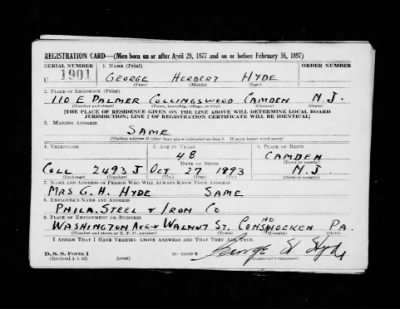 REGISTRATION CARD—(Men born on or after April 28, 1877 and on or before February 16, 1897)
SERIAL NUMBER 1. NAME (Print) ORDER NUMBER
U 1901 GEORGE HERBERT HYDE
2. PLACE OF RESIDENCE (Print)
110 E PALMER COLLINGSWOOD CAMDEN N.J.
[THE PLACE OF RESIDENCE GIVEN ON THE LINE ABOVE WILL DETERMINE LOCAL BOARD
JURISDICTION; LINE 2 OF REGISTRATION CERTIFICATE WILL BE IDENTICAL]
3. MAILING ADDRESS
SAME
[Mailing address if other than place indicated on line 2. If same insert word same]
4. TELEPHONE 5. AGE IN YEARS 6. PLACE OF BIRTH
48 CAMDEN
DATE OF BIRTH
COLL 2493 J OCT 27 1893 N.J.
7. NAME AND ADDRESS OF PERSON WHO WILL ALWAYS KNOW YOUR ADDRESS
MRS G. H. HYDE SAME
8. EMPLOYER'S NAME AND ADDRESS
PHILA. STEEL & IRON CO
9. PLACE OF EMPLOYMENT OR BUSINESS
WASHINGTON AVE & WALNUT ST. CONSHOHOCKEN PA.
I AFFIRM THAT I HAVE VERIFIED ABOVE ANSWERS AND THAT THEY ARE TRUE.
D. S. S. Form 1
(Revised 4-1-42)
George H Hyde